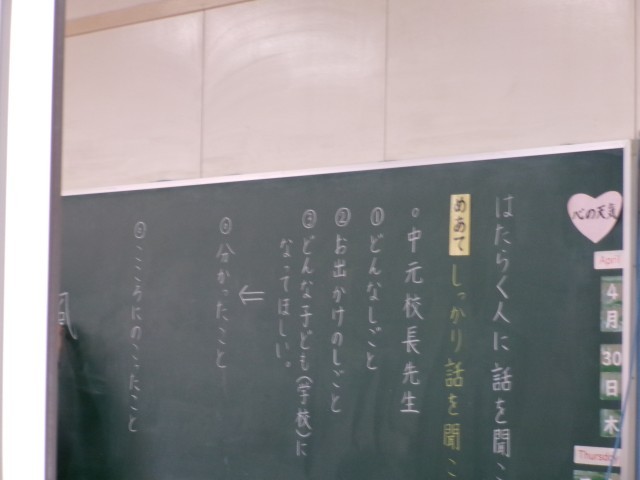 心の天気
April
4
月
30
日
木
Thursday
はたらく人に話を聞こ
めあて しっかり話を聞こ
○中元校長先生
①どんなしごと
②お出かけのしごと
③どんな子ども(学校)に
なってほしい。
⇐
分かったこと
こころにのこったこと